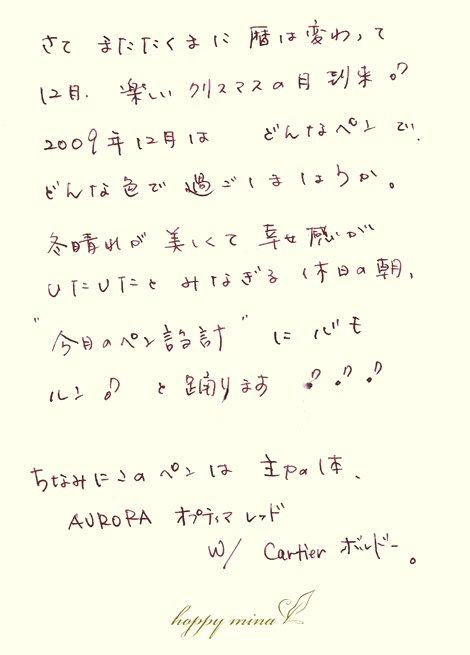 さて またたくまに 暦は変わって
12月. 楽しい クリスマスの月 到来♪
2009年12月は どんなペンで、
どんな色で 過ごしましょうか。
冬晴れが 美しくて 幸せ感が
ひたひたと みなぎる 休日の朝、
"今月のペン設計" に ルンルン♪ と踊ります ♪♪♪
ちなみにこのペンは
AURORA オプティマ レッド
W/ Cartier ボルドー。
hoppy mina